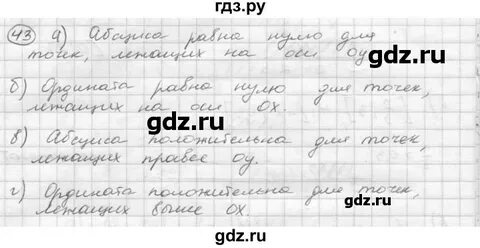 гдз.ру
43 а) Абсциса равна нулю для
точек, лежащих на оси оу.
gdz.ru
б) Ордината равна нулю для точек,
лежащих на оси ох.
gdz.ru
gdz.ru
в) Абсциса положительна для точек,
лежащих правее оу.
gdz.ru
г) Ордината положительна для точек,
лежащих выше ох.
gdz.ru